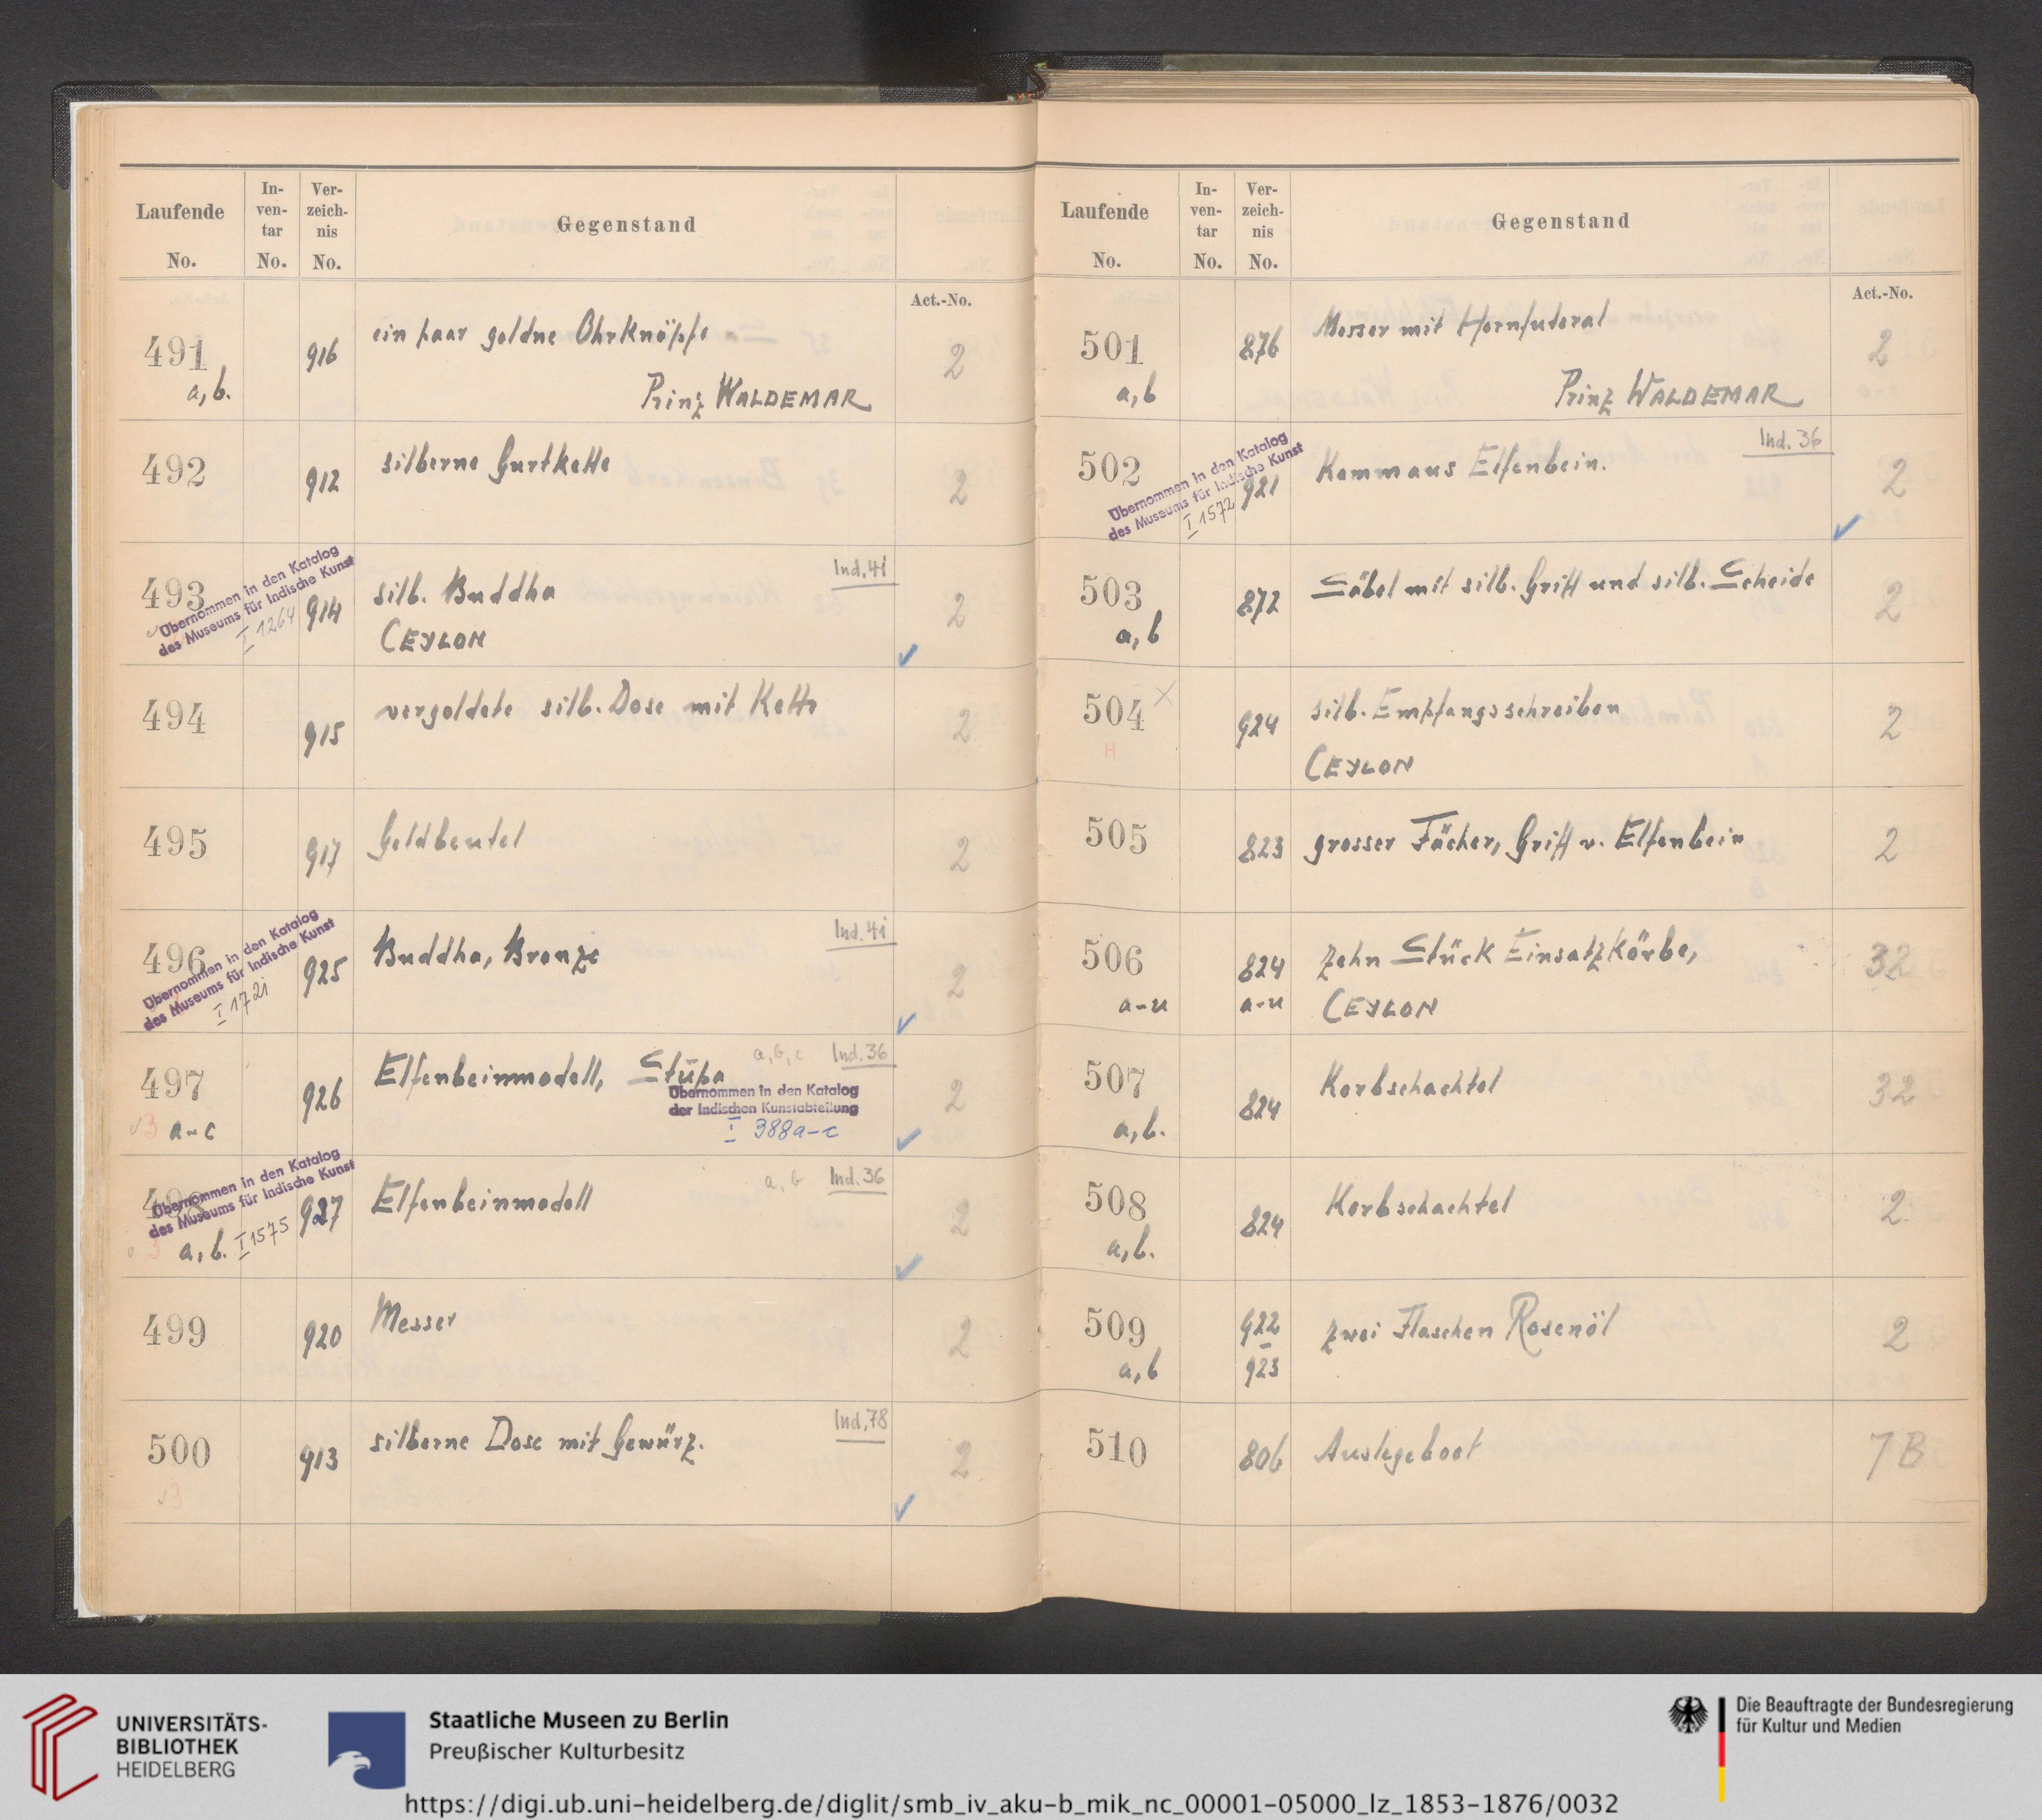 Laufende
No.
In-
ven-
tar
No.
Ver-
zeich-
nis
No.
Gegenstand
Act.-No.
491
a, b.
916
ein paar goldne Ohrknöpfe
Prinz WALDEMAR
2
492
912
silberne Gurtkette
2
493
Übernommen in den Katalog
des Museums für Indische Kunst
I 1264
914
silb. Buddha
CEYLON
Ind. 41
2
494
915
vergoldete silb. Dose mit Kette
2
495
917
Geldbeutel
2
496
Übernommen in den Katalog
des Museums für Indische Kunst
I 1721
925
Buddha, Bronze
Ind. 41
2
497
3 a-c
926
Elfenbeinmodell, Stūpa
a, b, c
Ind. 36
Übernommen in den Katalog
der Indischen Kunstabteilung
I 388a-c
2
498
Übernommen in den Katalog
des Museums für Indische Kunst
3 a, b. I 1575
927
Elfenbeinmodell
a, b
Ind. 36
2
499
920
Messer
2
500
3
913
silberne Dose mit Gewürz.
Ind. 78
2
Laufende
No.
In-
ven-
tar
No.
Ver-
zeich-
nis
No.
Gegenstand
Act.-No.
501
a, b
876
Messer mit Hornfuteral
Prinz WALDEMAR
2
502
Übernommen in den Katalog
des Museums für Indische Kunst
I 1572
921
Kamm aus Elfenbein.
Ind. 36
2
503
a, b
872
Säbel mit silb. Griff und silb. Scheide
2
504 ×
H
924
silb. Empfangsschreiben
CEYLON
2
505
823
grosser Fächer, Griff v. Elfenbein
2
506
a-u
824
a-u
zehn Stück Einsatzkörbe,
CEYLON
32
507
a, b.
824
Korbschachtel
32
508
a, b.
824
Korbschachtel
2
509
a, b
922
–
923
zwei Flaschen Rosenöl
2
510
806
Auslegeboot
7B
UNIVERSITÄTS-
BIBLIOTHEK
HEIDELBERG
Staatliche Museen zu Berlin
Preußischer Kulturbesitz
Die Beauftragte der Bundesregierung
für Kultur und Medien
https://digi.ub.uni-heidelberg.de/diglit/smb_iv_aku-b_mik_nc_00001-05000_lz_1853-1876/0032